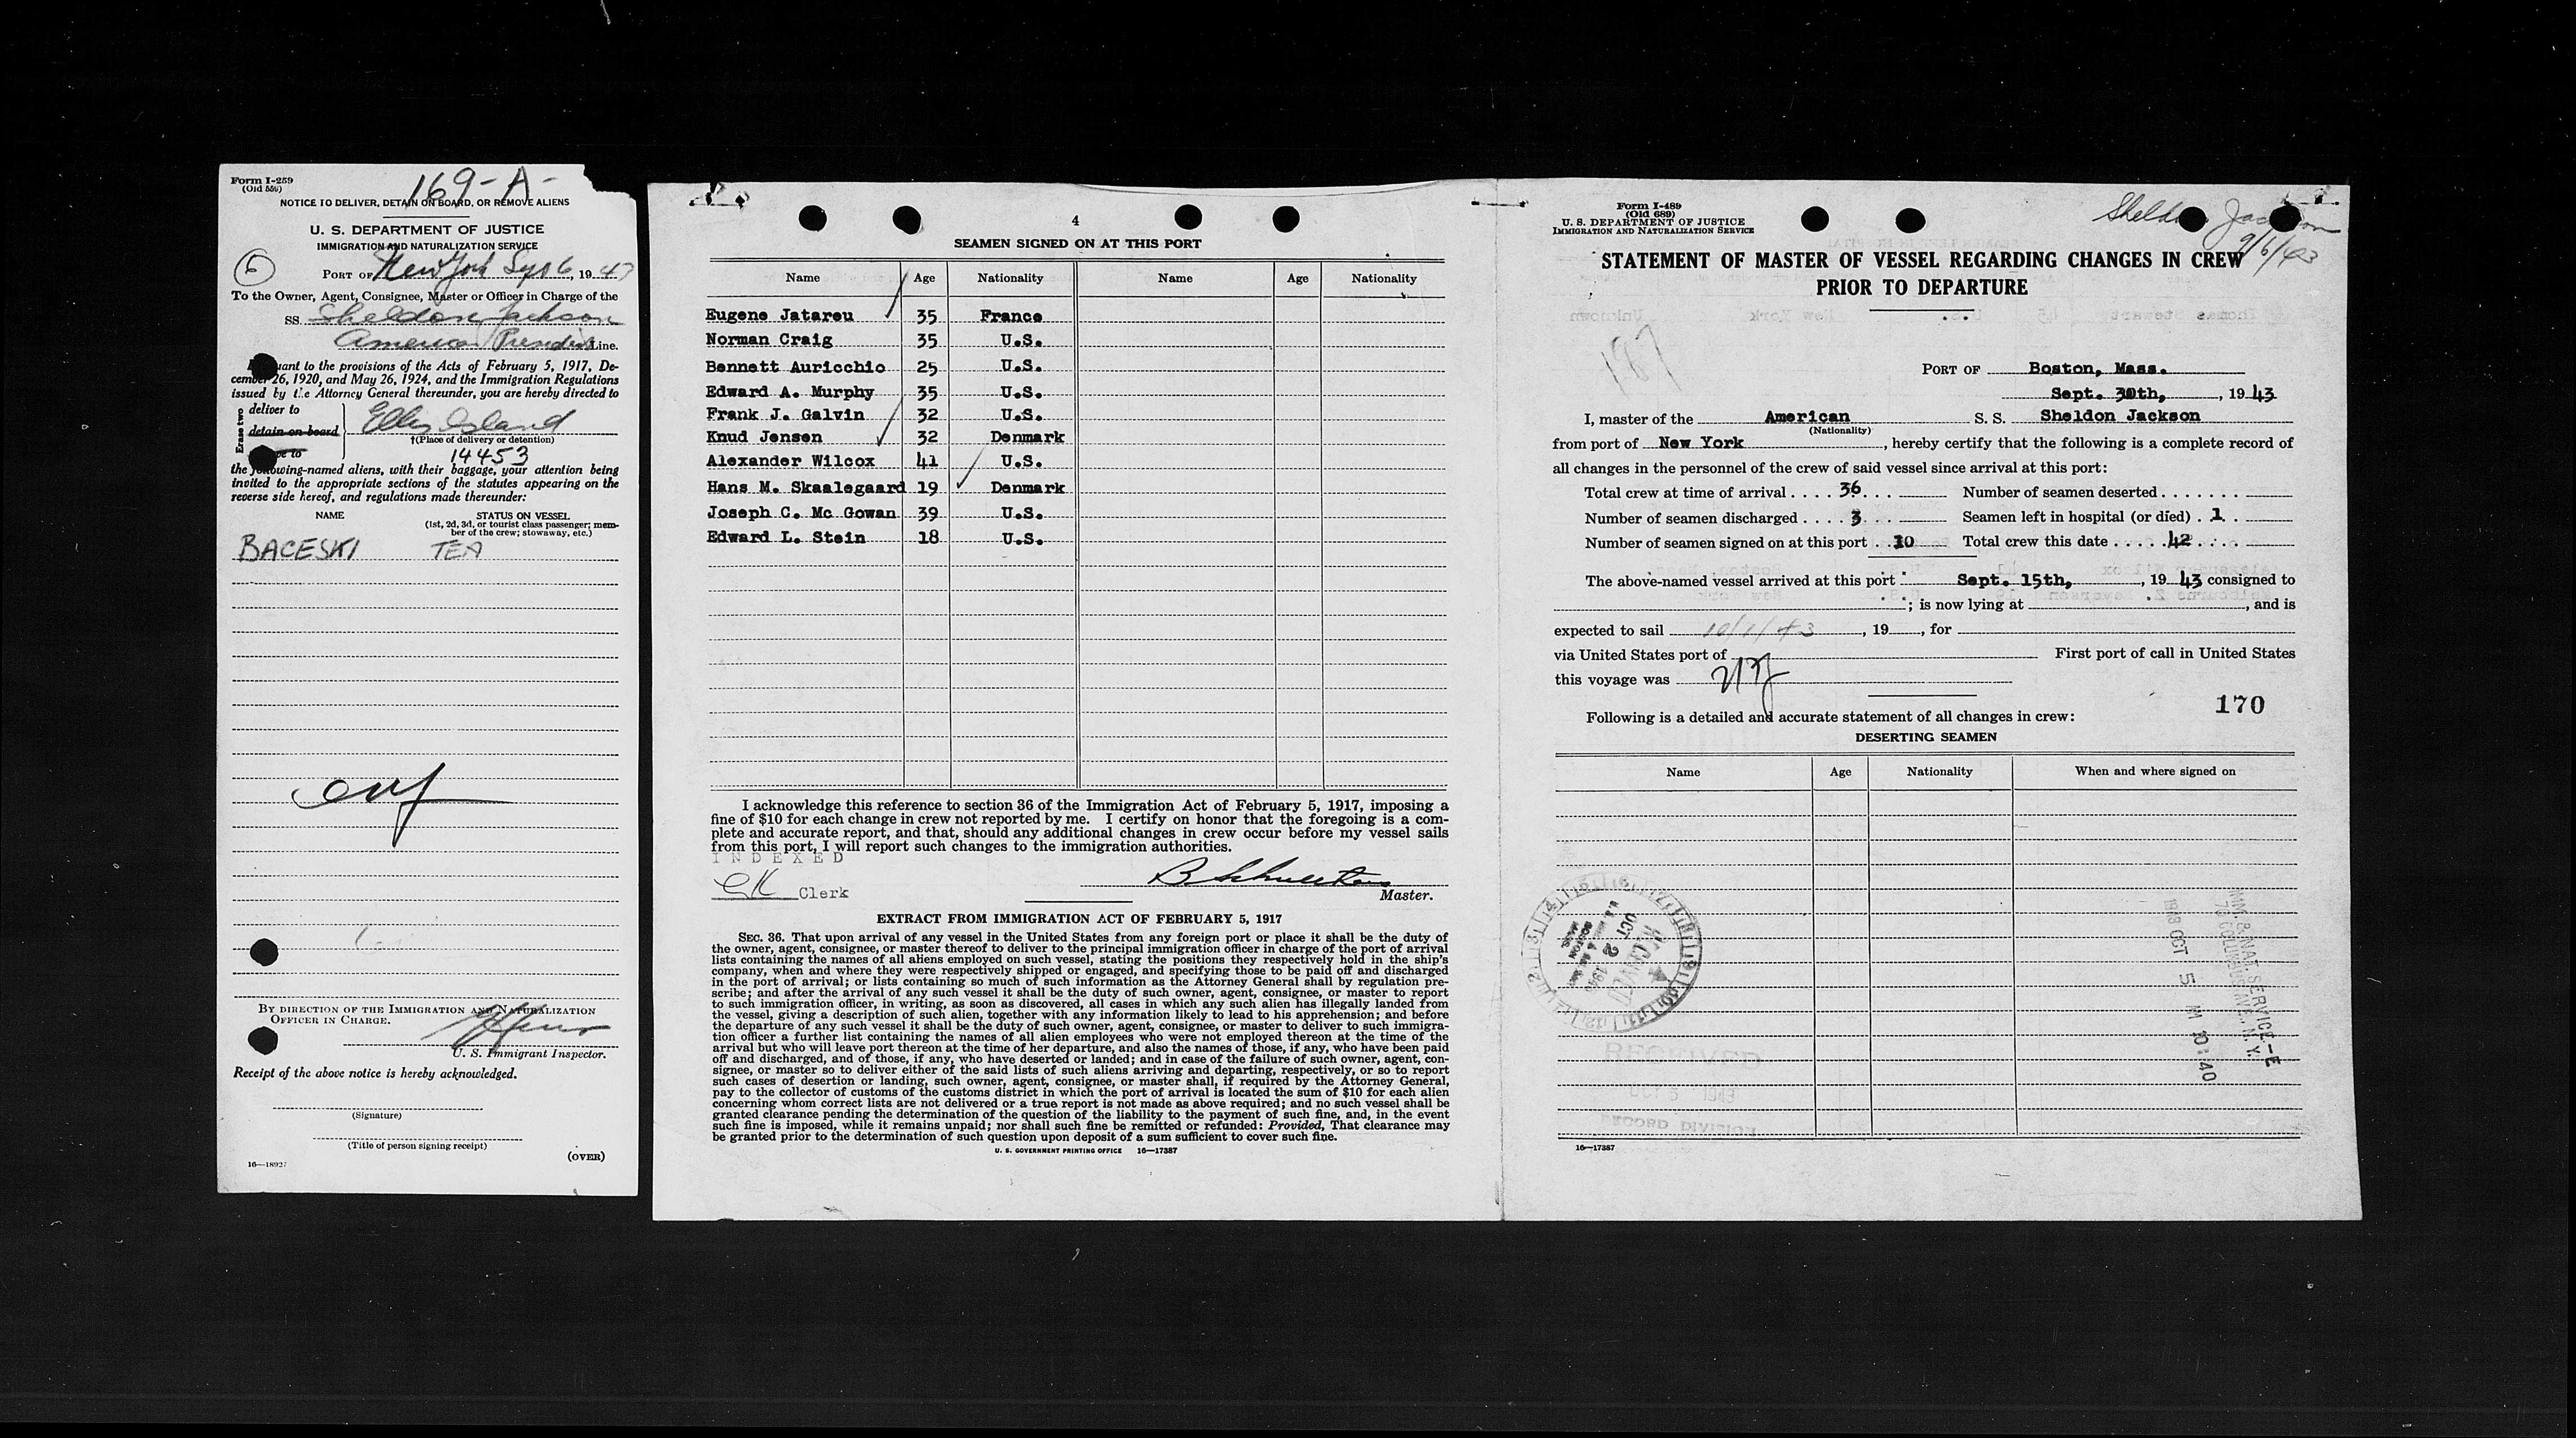 Form I-259
(Old 559)
169-A-
NOTICE TO DELIVER, DETAIN ON BOARD, OR REMOVE ALIENS
U. S. DEPARTMENT OF JUSTICE
IMMIGRATION AND NATURALIZATION SERVICE
6
PORT OF New York Sept 6, 1943
To the Owner, Agent, Consignee, Master or Officer in Charge of the
SS. Sheldon Jackson
American President Line.
uant to the provisions of the Acts of February 5, 1917, De-
cember 26, 1920, and May 26, 1924, and the Immigration Regulations
issued by the Attorney General thereunder, you are hereby directed to
Erase two
deliver to
detain on board
Ellis Island
†(Place of delivery or detention)
14453
the following-named aliens, with their baggage, your attention being
invited to the appropriate sections of the statutes appearing on the
reverse side hereof, and regulations made thereunder:
NAME STATUS ON VESSEL
(1st, 2d, 3d, or tourist class passenger; mem-
ber of the crew; stowaway, etc.)
BACESKI TEA
BY DIRECTION OF THE IMMIGRATION AND NATURALIZATION
OFFICER IN CHARGE.
U. S. Immigrant Inspector.
Receipt of the above notice is hereby acknowledged.
(Signature)
(Title of person signing receipt)
16—18927
(OVER)
4
SEAMEN SIGNED ON AT THIS PORT
Name Age Nationality Name Age Nationality
Eugene Jatareu 35 France
Norman Craig 35 U.S.
Bennett Auricchio 25 U.S.
Edward A. Murphy 35 U.S.
Frank J. Galvin 32 U.S.
Knud Jensen 32 Denmark
Alexander Wilcox 41 U.S.
Hans M. Skaalegaard 19 Denmark
Joseph C. Mc Gowan 39 U.S.
Edward L. Stein 18 U.S.
I acknowledge this reference to section 36 of the Immigration Act of February 5, 1917, imposing a
fine of $10 for each change in crew not reported by me. I certify on honor that the foregoing is a com-
plete and accurate report, and that, should any additional changes in crew occur before my vessel sails
from this port, I will report such changes to the immigration authorities.
INDEXED
Clerk
Master.
EXTRACT FROM IMMIGRATION ACT OF FEBRUARY 5, 1917
SEC. 36. That upon arrival of any vessel in the United States from any foreign port or place it shall be the duty of
the owner, agent, consignee, or master thereof to deliver to the principal immigration officer in charge of the port of arrival
lists containing the names of all aliens employed on such vessel, stating the positions they respectively hold in the ship's
company, when and where they were respectively shipped or engaged, and specifying those to be paid off and discharged
in the port of arrival; or lists containing so much of such information as the Attorney General shall by regulation pre-
scribe; and after the arrival of any such vessel it shall be the duty of such owner, agent, consignee, or master to report
to such immigration officer, in writing, as soon as discovered, all cases in which any such alien has illegally landed from
the vessel, giving a description of such alien, together with any information likely to lead to his apprehension; and before
the departure of any such vessel it shall be the duty of such owner, agent, consignee, or master to deliver to such immigra-
tion officer a further list containing the names of all alien employees who were not employed thereon at the time of the
arrival but who will leave port thereon at the time of her departure, and also the names of those, if any, who have been paid
off and discharged, and of those, if any, who have deserted or landed; and in case of the failure of such owner, agent, con-
signee, or master so to deliver either of the said lists of such aliens arriving and departing, respectively, or so to report
such cases of desertion or landing, such owner, agent, consignee, or master shall, if required by the Attorney General,
pay to the collector of customs of the customs district in which the port of arrival is located the sum of $10 for each alien
concerning whom correct lists are not delivered or a true report is not made as above required; and no such vessel shall be
granted clearance pending the determination of the question of the liability to the payment of such fine, and, in the event
such fine is imposed, while it remains unpaid; nor shall such fine be remitted or refunded: Provided, That clearance may
be granted prior to the determination of such question upon deposit of a sum sufficient to cover such fine.
U. S. GOVERNMENT PRINTING OFFICE 16—17387
Form I-489
(Old 689)
U. S. DEPARTMENT OF JUSTICE
IMMIGRATION AND NATURALIZATION SERVICE
Sheldon Jackson
9/6/43
STATEMENT OF MASTER OF VESSEL REGARDING CHANGES IN CREW
PRIOR TO DEPARTURE
187
PORT OF Boston, Mass.
Sept. 30th, , 1943
I, master of the American S. S. Sheldon Jackson
(Nationality)
from port of New York , hereby certify that the following is a complete record of
all changes in the personnel of the crew of said vessel since arrival at this port:
Total crew at time of arrival . . . . 36 . . . Number of seamen deserted . . . . . . .
Number of seamen discharged . . . . 3 . . . Seamen left in hospital (or died) . 1 . .
Number of seamen signed on at this port . . 10 Total crew this date . . . . . 42 . . . .
The above-named vessel arrived at this port Sept. 15th, , 1943 consigned to
; is now lying at , and is
expected to sail 10/1/43 , 19 , for
via United States port of First port of call in United States
this voyage was NY
170
Following is a detailed and accurate statement of all changes in crew:
DESERTING SEAMEN
Name Age Nationality When and where signed on
OCT 2
IMM. & NAT. SERVICE-E
70 COLUMBUS AVE., N.Y.
1943 OCT 5 AM 10:40
RECEIVED
OCT 6 1943
RECORD DIVISION
16—17387